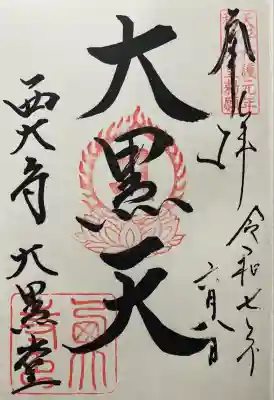 奉拝
令和七年
六月八日
大黒天
西大寺 大黒堂